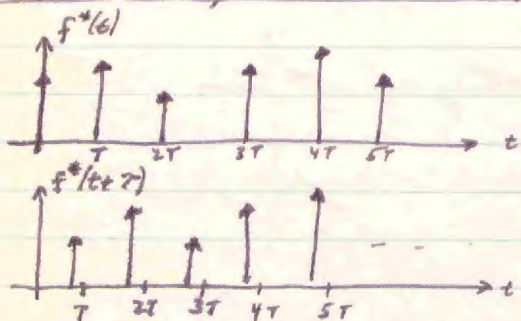 f*(t)
T 2T 3T 4T 5T t
f*(t+T)
T 2T 3T 4T 5T t